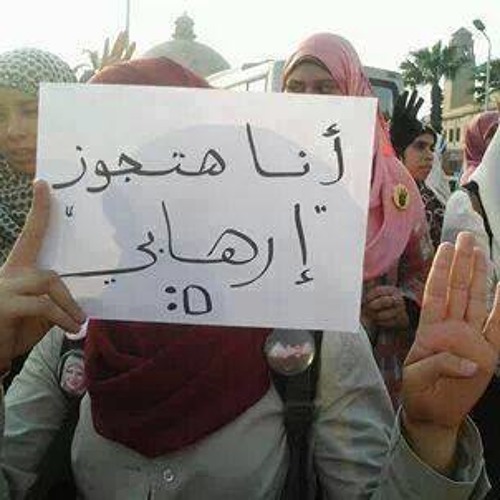 أنا هتجوز
"إرهابي"
:D